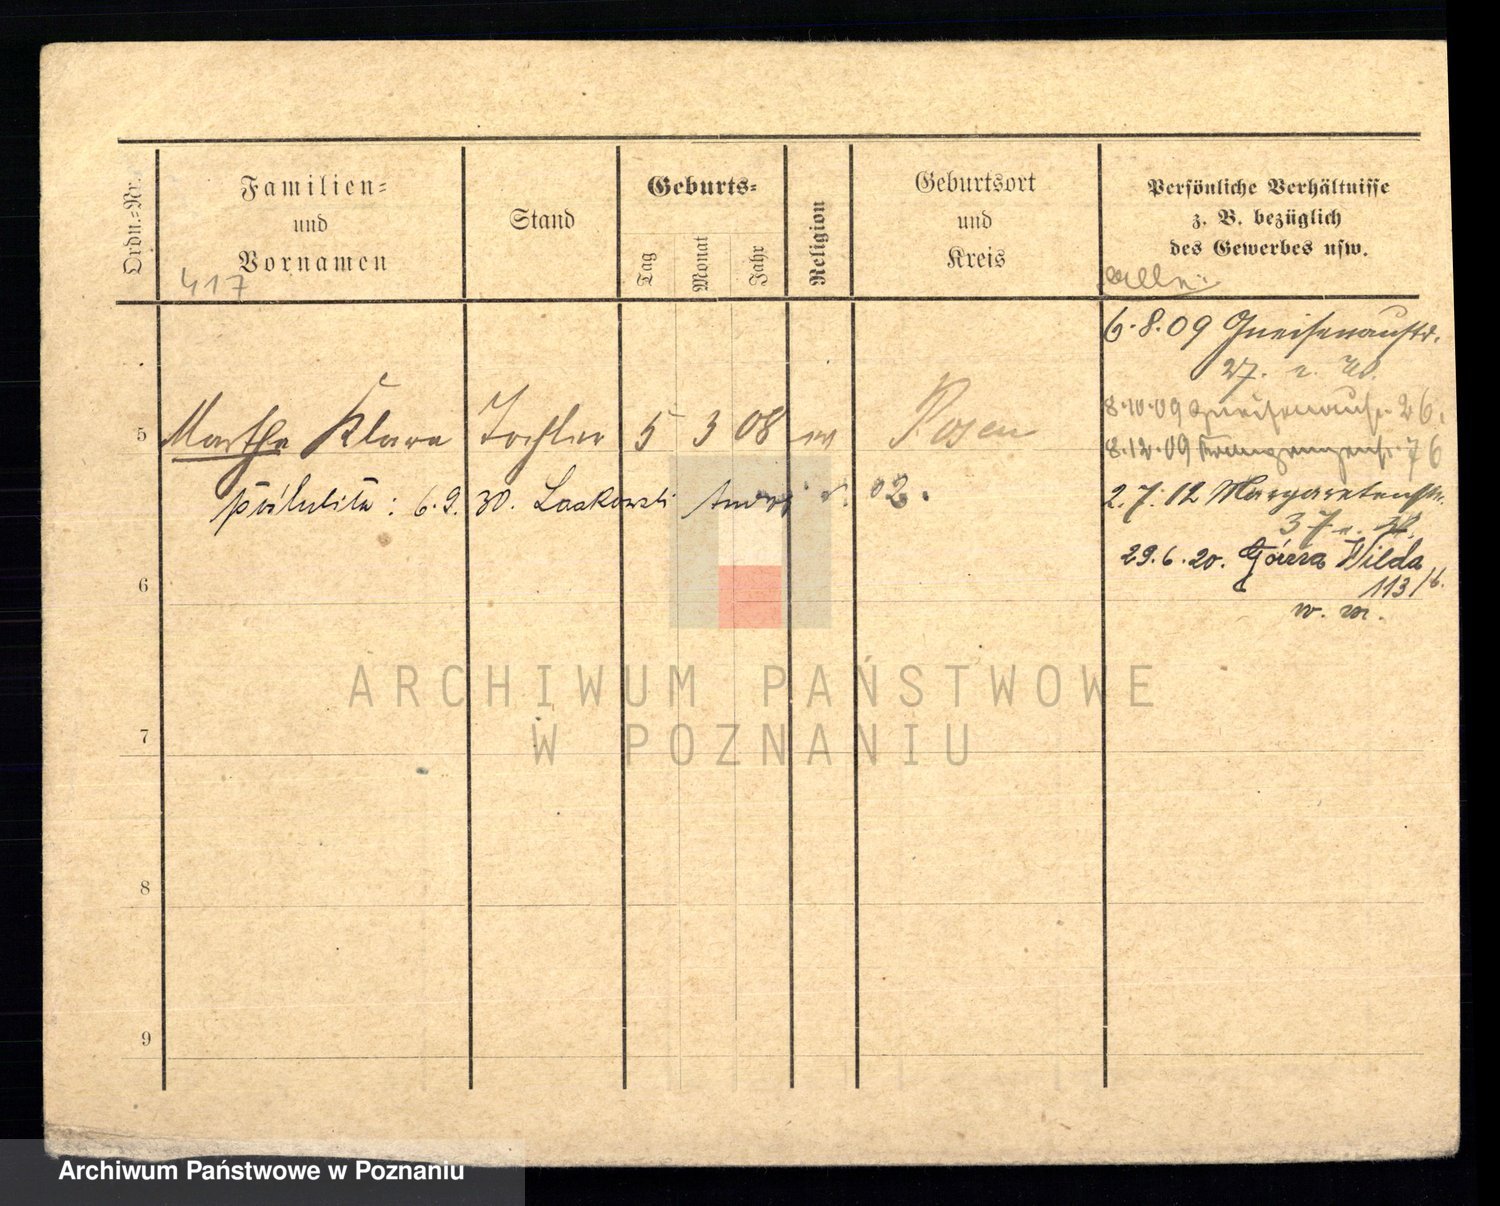 Ordn.-Nr.
Familien-
und
Vornamen
417
Stand
Geburts-
Tag
Monat
Jahr
Religion
Geburtsort
und
Kreis
Persönliche Verhältnisse
z. B. bezüglich
des Gewerbes usw.
6.8.09 Gneisenaustr.
27.
5 Marthe Klara Tochter 5 3 08 Posen
8.10.09 Gneisenaustr. 26.
8.12.09 76
poślubiła: 6.9.30. Laskowski 02.
2.7.12 Margaretenstr.
37
29.6.20. Górna Wilda
113/
6
7
8
9
ARCHIWUM PAŃSTWOWE
W POZNANIU
Archiwum Państwowe w Poznaniu